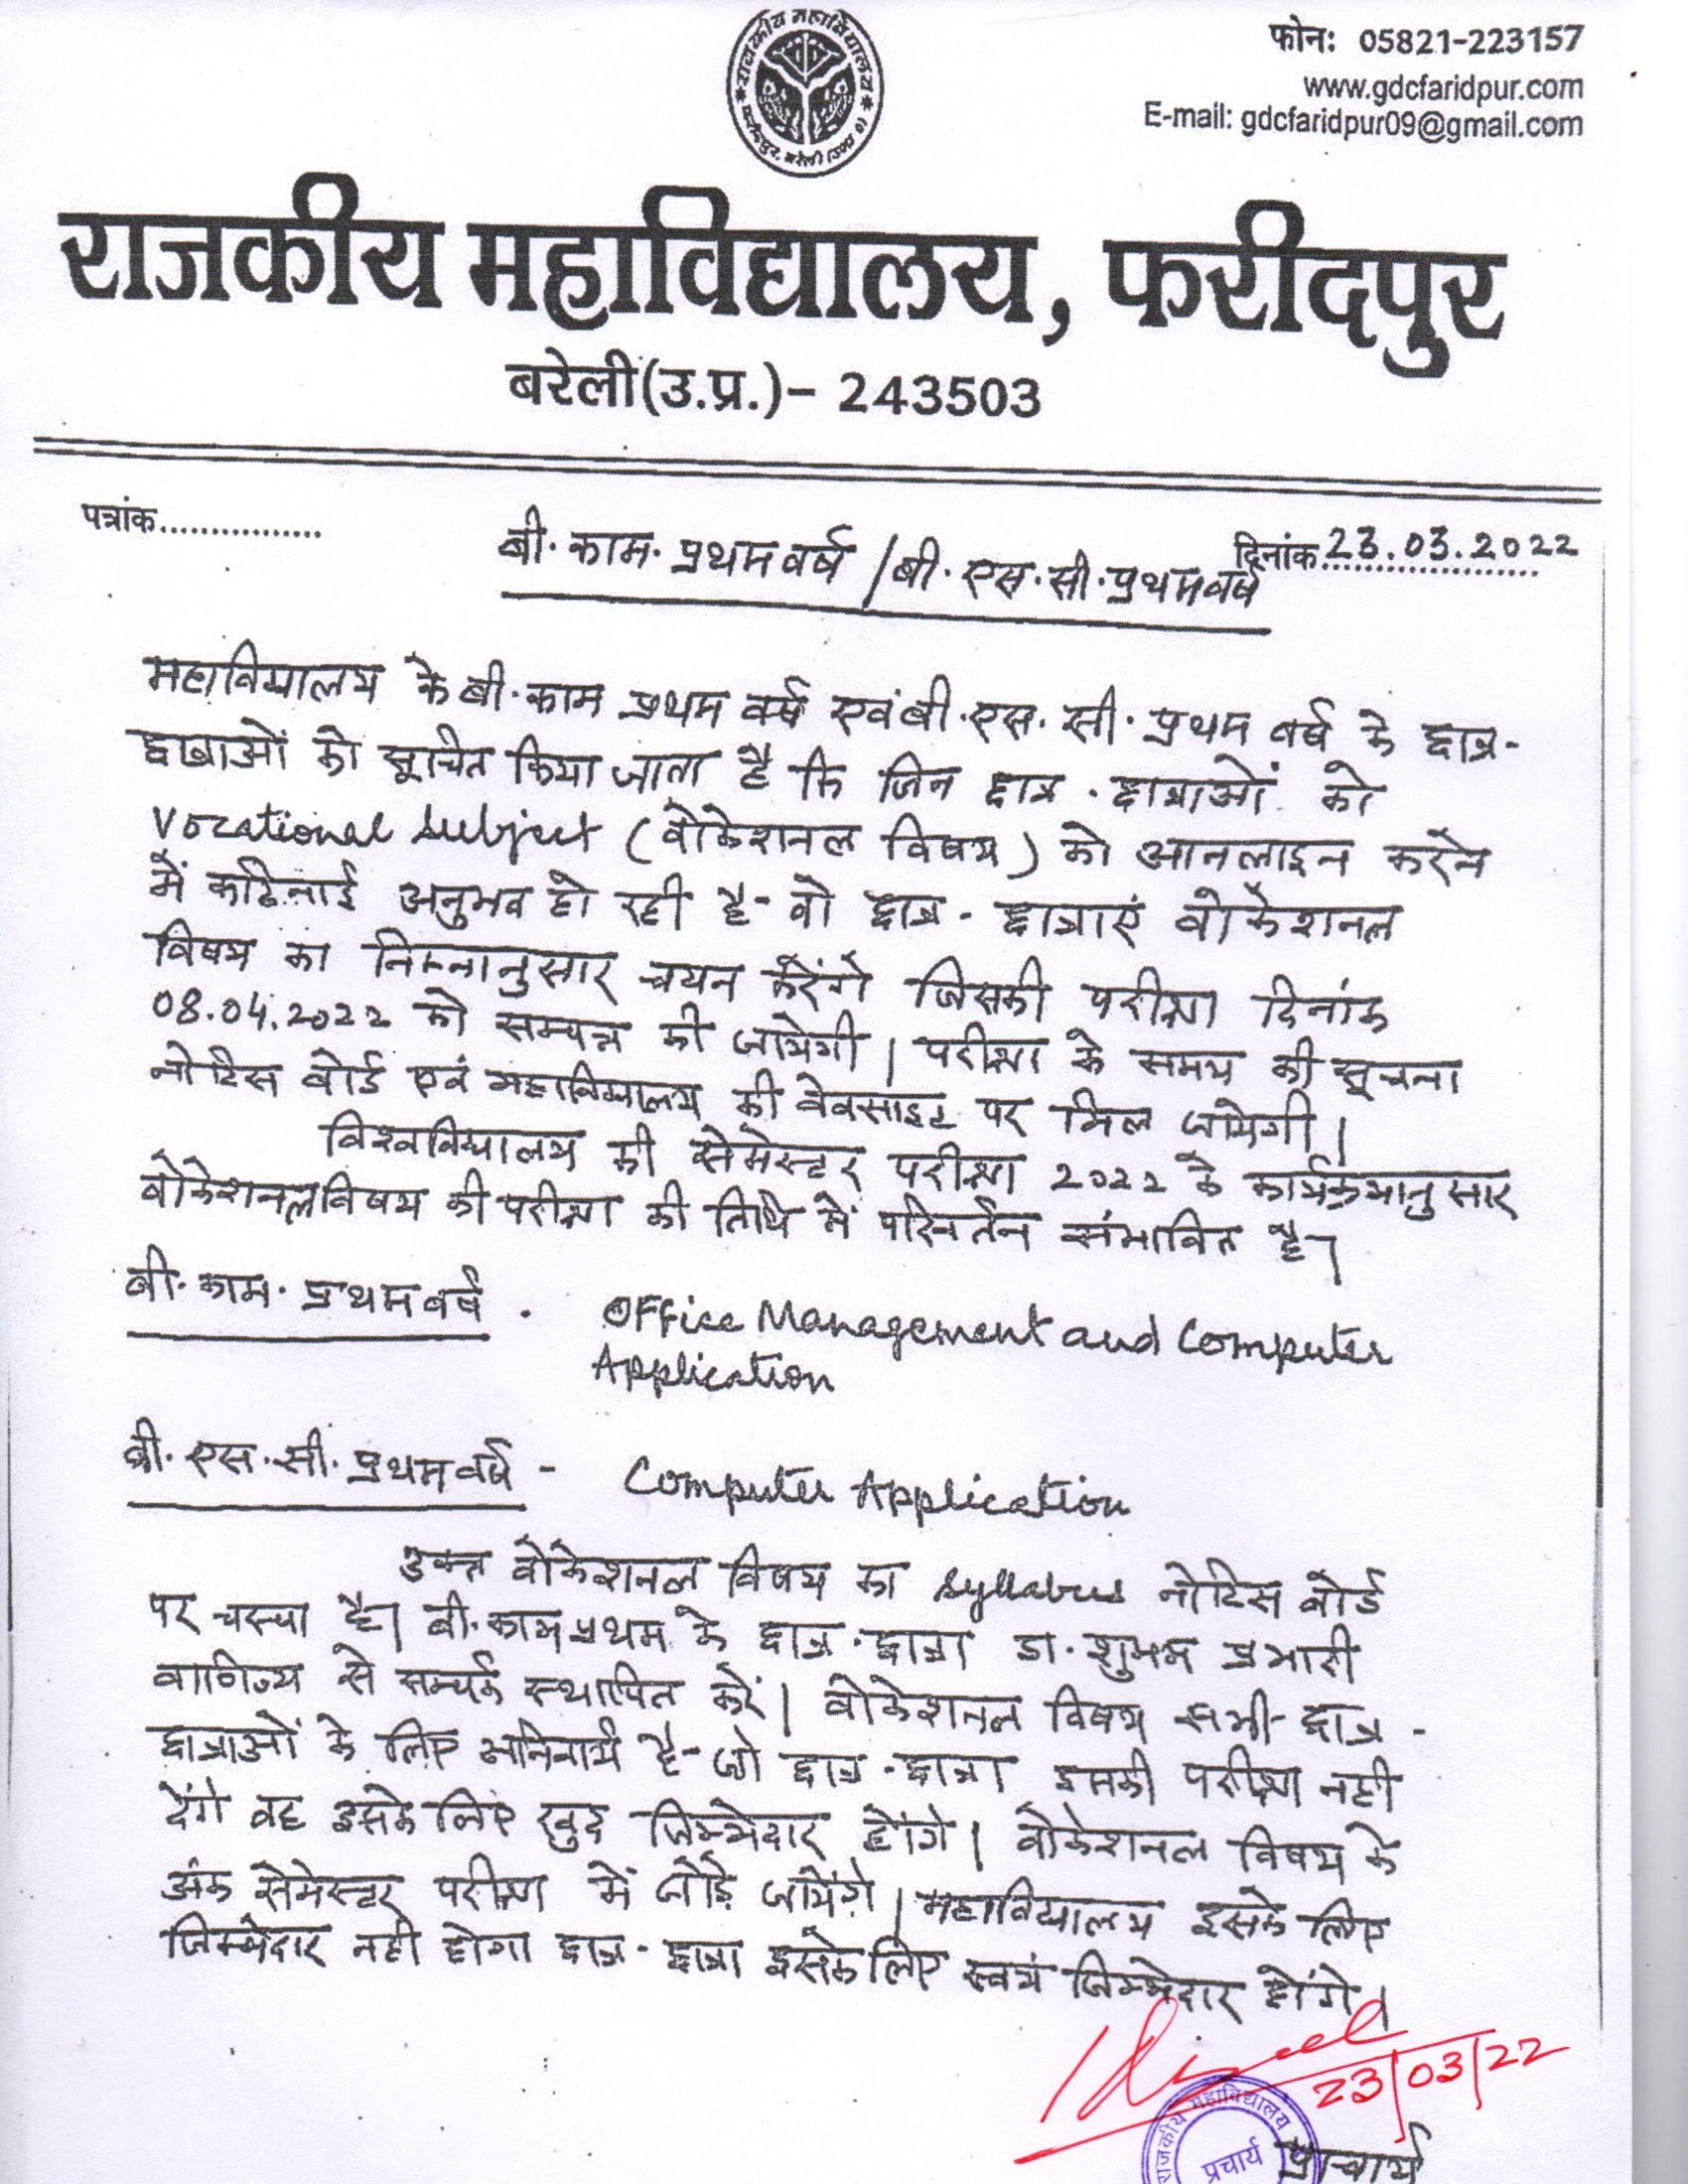 राजकीय महाविद्यालय
फरीदपुर, बरेली (उ०प्र०)
फोन: 05821-223157
www.gdcfaridpur.com
E-mail: gdcfaridpur09@gmail.com
राजकीय महाविद्यालय, फरीदपुर
बरेली(उ.प्र.)- 243503
पत्रांक................
दिनांक 23.03.2022
बी.काम. प्रथम वर्ष / बी.एस.सी. प्रथम वर्ष
महाविद्यालय के बी.काम प्रथम वर्ष एवं बी.एस.सी. प्रथम वर्ष के छात्र-
छात्राओं को सूचित किया जाता है कि जिन छात्र-छात्राओं को
Vocational subject (वोकेशनल विषय) को आनलाइन करने
में कठिनाई अनुभव हो रही है- वो छात्र-छात्राएं वोकेशनल
विषय का निम्नानुसार चयन करेंगे जिसकी परीक्षा दिनांक
08.04.2022 को सम्पन्न की जायेगी। परीक्षा के समय की सूचना
नोटिस बोर्ड एवं महाविद्यालय की वेबसाइट पर मिल जायेगी।
विश्वविद्यालय की सेमेस्टर परीक्षा 2022 के कार्यक्रमानुसार
वोकेशनल विषय की परीक्षा की तिथि में परिवर्तन संभावित है।
बी.काम. प्रथम वर्ष . Office Management and Computer
Application
बी.एस.सी. प्रथम वर्ष - Computer Application
उक्त वोकेशनल विषय का syllabus नोटिस बोर्ड
पर चस्पा है। बी.काम प्रथम के छात्र-छात्रा डा. शुभम प्रभारी
वाणिज्य से सम्पर्क स्थापित करें। वोकेशनल विषय सभी छात्र-
छात्राओं के लिए अनिवार्य है- जो छात्र-छात्रा इसकी परीक्षा नही
देंगे वह इसके लिए खुद जिम्मेदार होंगे। वोकेशनल विषय के
अंक सेमेस्टर परीक्षा में जोड़े जायेंगे। महाविद्यालय इसके लिए
जिम्मेदार नही होगा छात्र-छात्रा इसके लिए स्वयं जिम्मेदार होंगे।
23/03/22
राजकीय महाविद्यालय
प्राचार्य
प्राचार्य